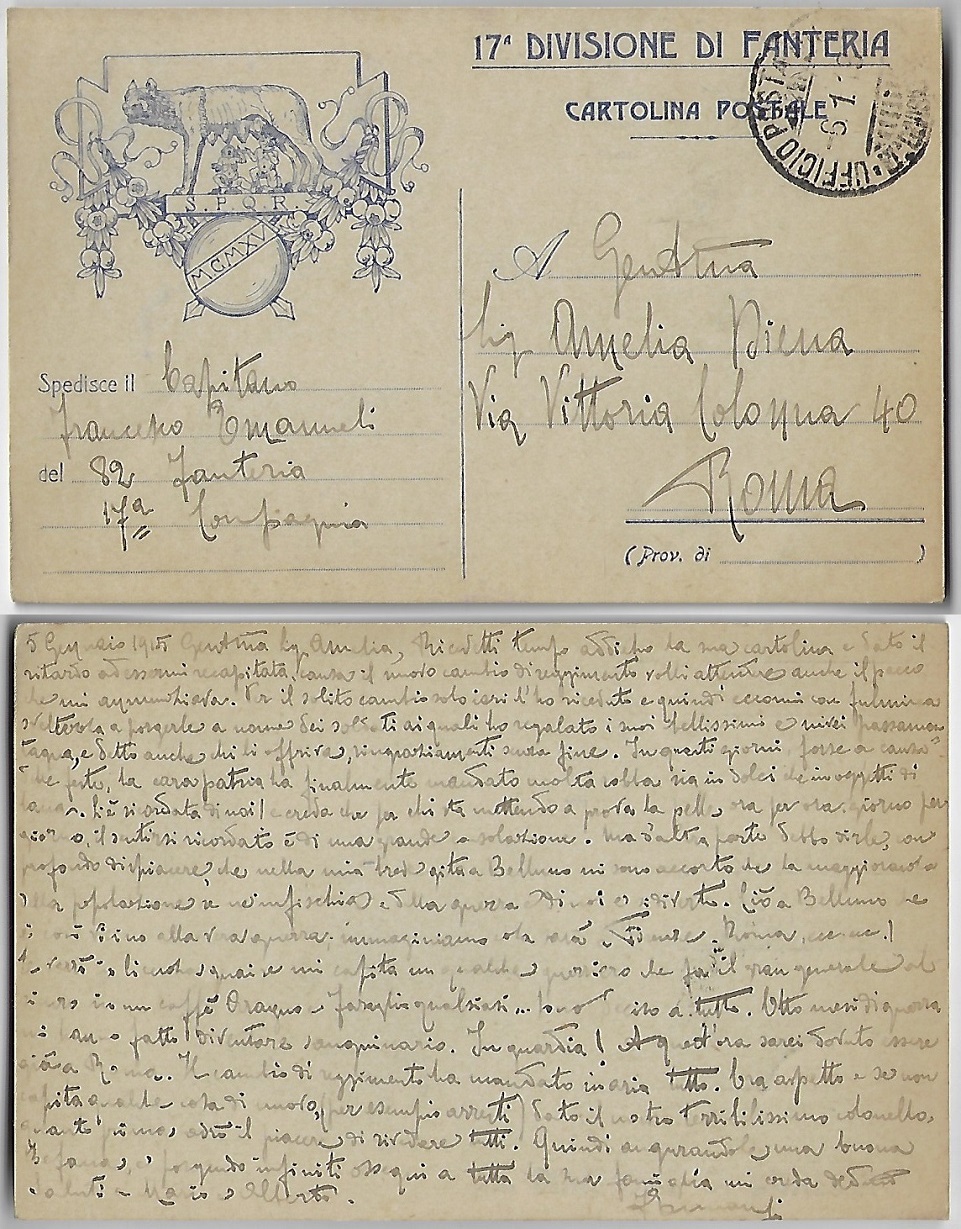 17ª DIVISIONE DI FANTERIA
CARTOLINA POSTALE
UFFICIO POSTA
6 1 16
S.P.Q.R.
MCMXV
A Gentma
Sig Amelia Diena
Via Vittoria Colonna 40
Roma
(Prov. di )
Spedisce il Capitano
Francesco Emanueli
del 82 Fanteria
17a Compagnia
5 Gennaio 1915 Gentma Sig Amelia, Ricevetti tempo addietro la sua cartolina e dato il
ritardo ad essermi recapitata, causa il nuovo cambio di reggimento volli attendere anche il pacco
che mi annunciava. Per il solito cambio solo ieri l'ho ricevuto e quindi eccomi con fulminea
sveltezza a porgerle a nome dei soldati ai quali ho regalato i suoi bellissimi e nivei passamon
tagna, e detto anche chi li offriva, ringraziamenti senza fine. In questi giorni, forse a causa
feste, la cara patria ha finalmente mandato molta robba sia in dolci che in oggetti di
lana. Si è ricordata di noi! e creda che per chi sta mettendo a prova la pelle, ora per ora, giorno per
giorno, il sentirsi ricordato è di una grande consolazione. Ma d'altra parte debbo dirle, con
profondo dispiacere, che nella mia breve gita a Belluno mi sono accorto che la maggioranza
della popolazione se ne infischia e della guerra e di noi e si diverte. Ciò a Belluno che
è così vicino alla vera guerra. immaginiamo cosa sarà Firenze, Roma, ecc ecc!
Se verrò in licenza, guai se mi capita un qualche guerriero che fa il gran generale al
in un caffè Aragno e Faraglia qualsiasi... Sono deciso a tutto. Otto mesi di guerra
mi hanno fatto diventare sanguinario. In guardia! A quest'ora sarei dovuto essere
già a Roma. Il cambio di reggimento ha mandato in aria tutto. Ora aspetto e se non
capita qualche cosa di nuovo, (per esempio arresti) dato il nostro terribilissimo colonello,
quanto prima, avrò il piacere di rivedere tutti. Quindi augurandole una buona
Befana, e porgendo infiniti ossequi a tutta la sua famiglia mi creda devmo
Saluti a Mario e Alberto.
FEmanueli